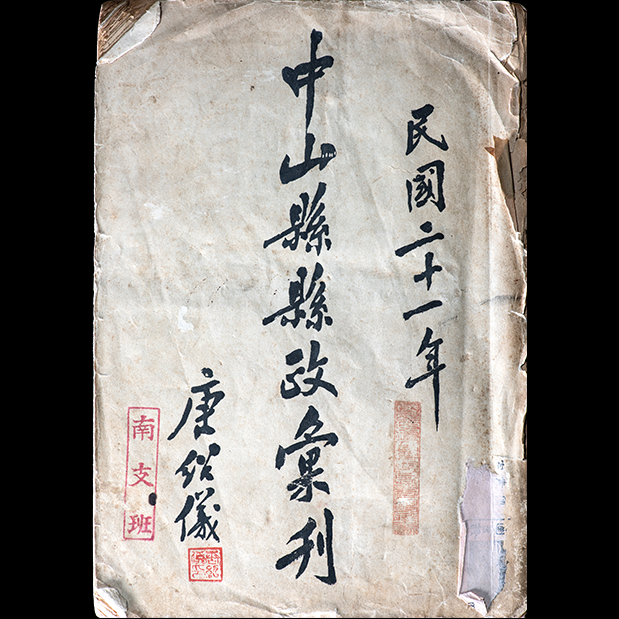 民國二十一年
中山縣縣政彙刊
唐紹儀
南支班